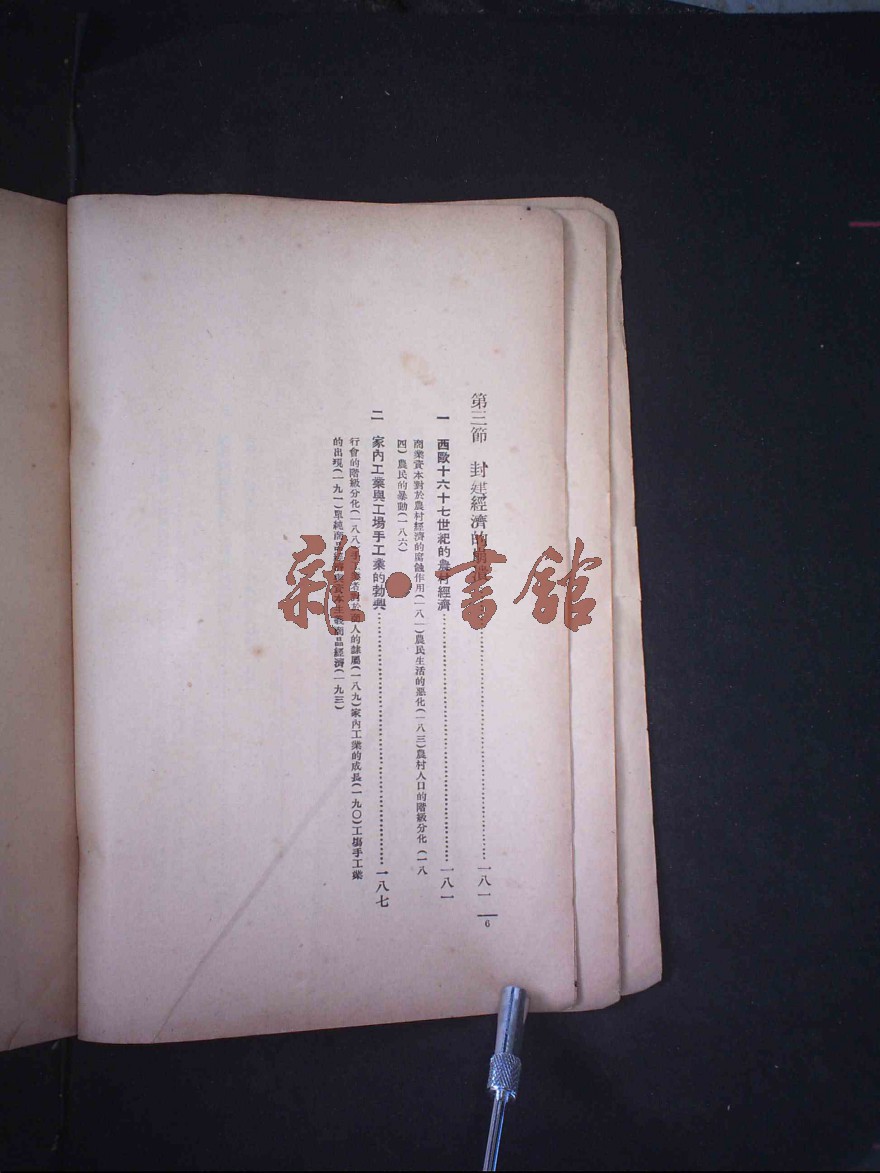 第三節 封建經濟的崩潰……一八一
一 西歐十六十七世紀的農村經濟……一八一
商業資本對於農村經濟的腐蝕作用(一八一)農民生活的惡化(一八三)農村人口的階級分化(一八
四)農民的暴動(一八六)
二 家內工業與工場手工業的勃興……一八七
行會的階級分化(一八八)手工業者對於商人的隸屬(一八九)家內工業的成長(一九〇)工場手工業
的出現(一九一)單純商品經濟與資本主義商品經濟(一九三)
6
雜·書館